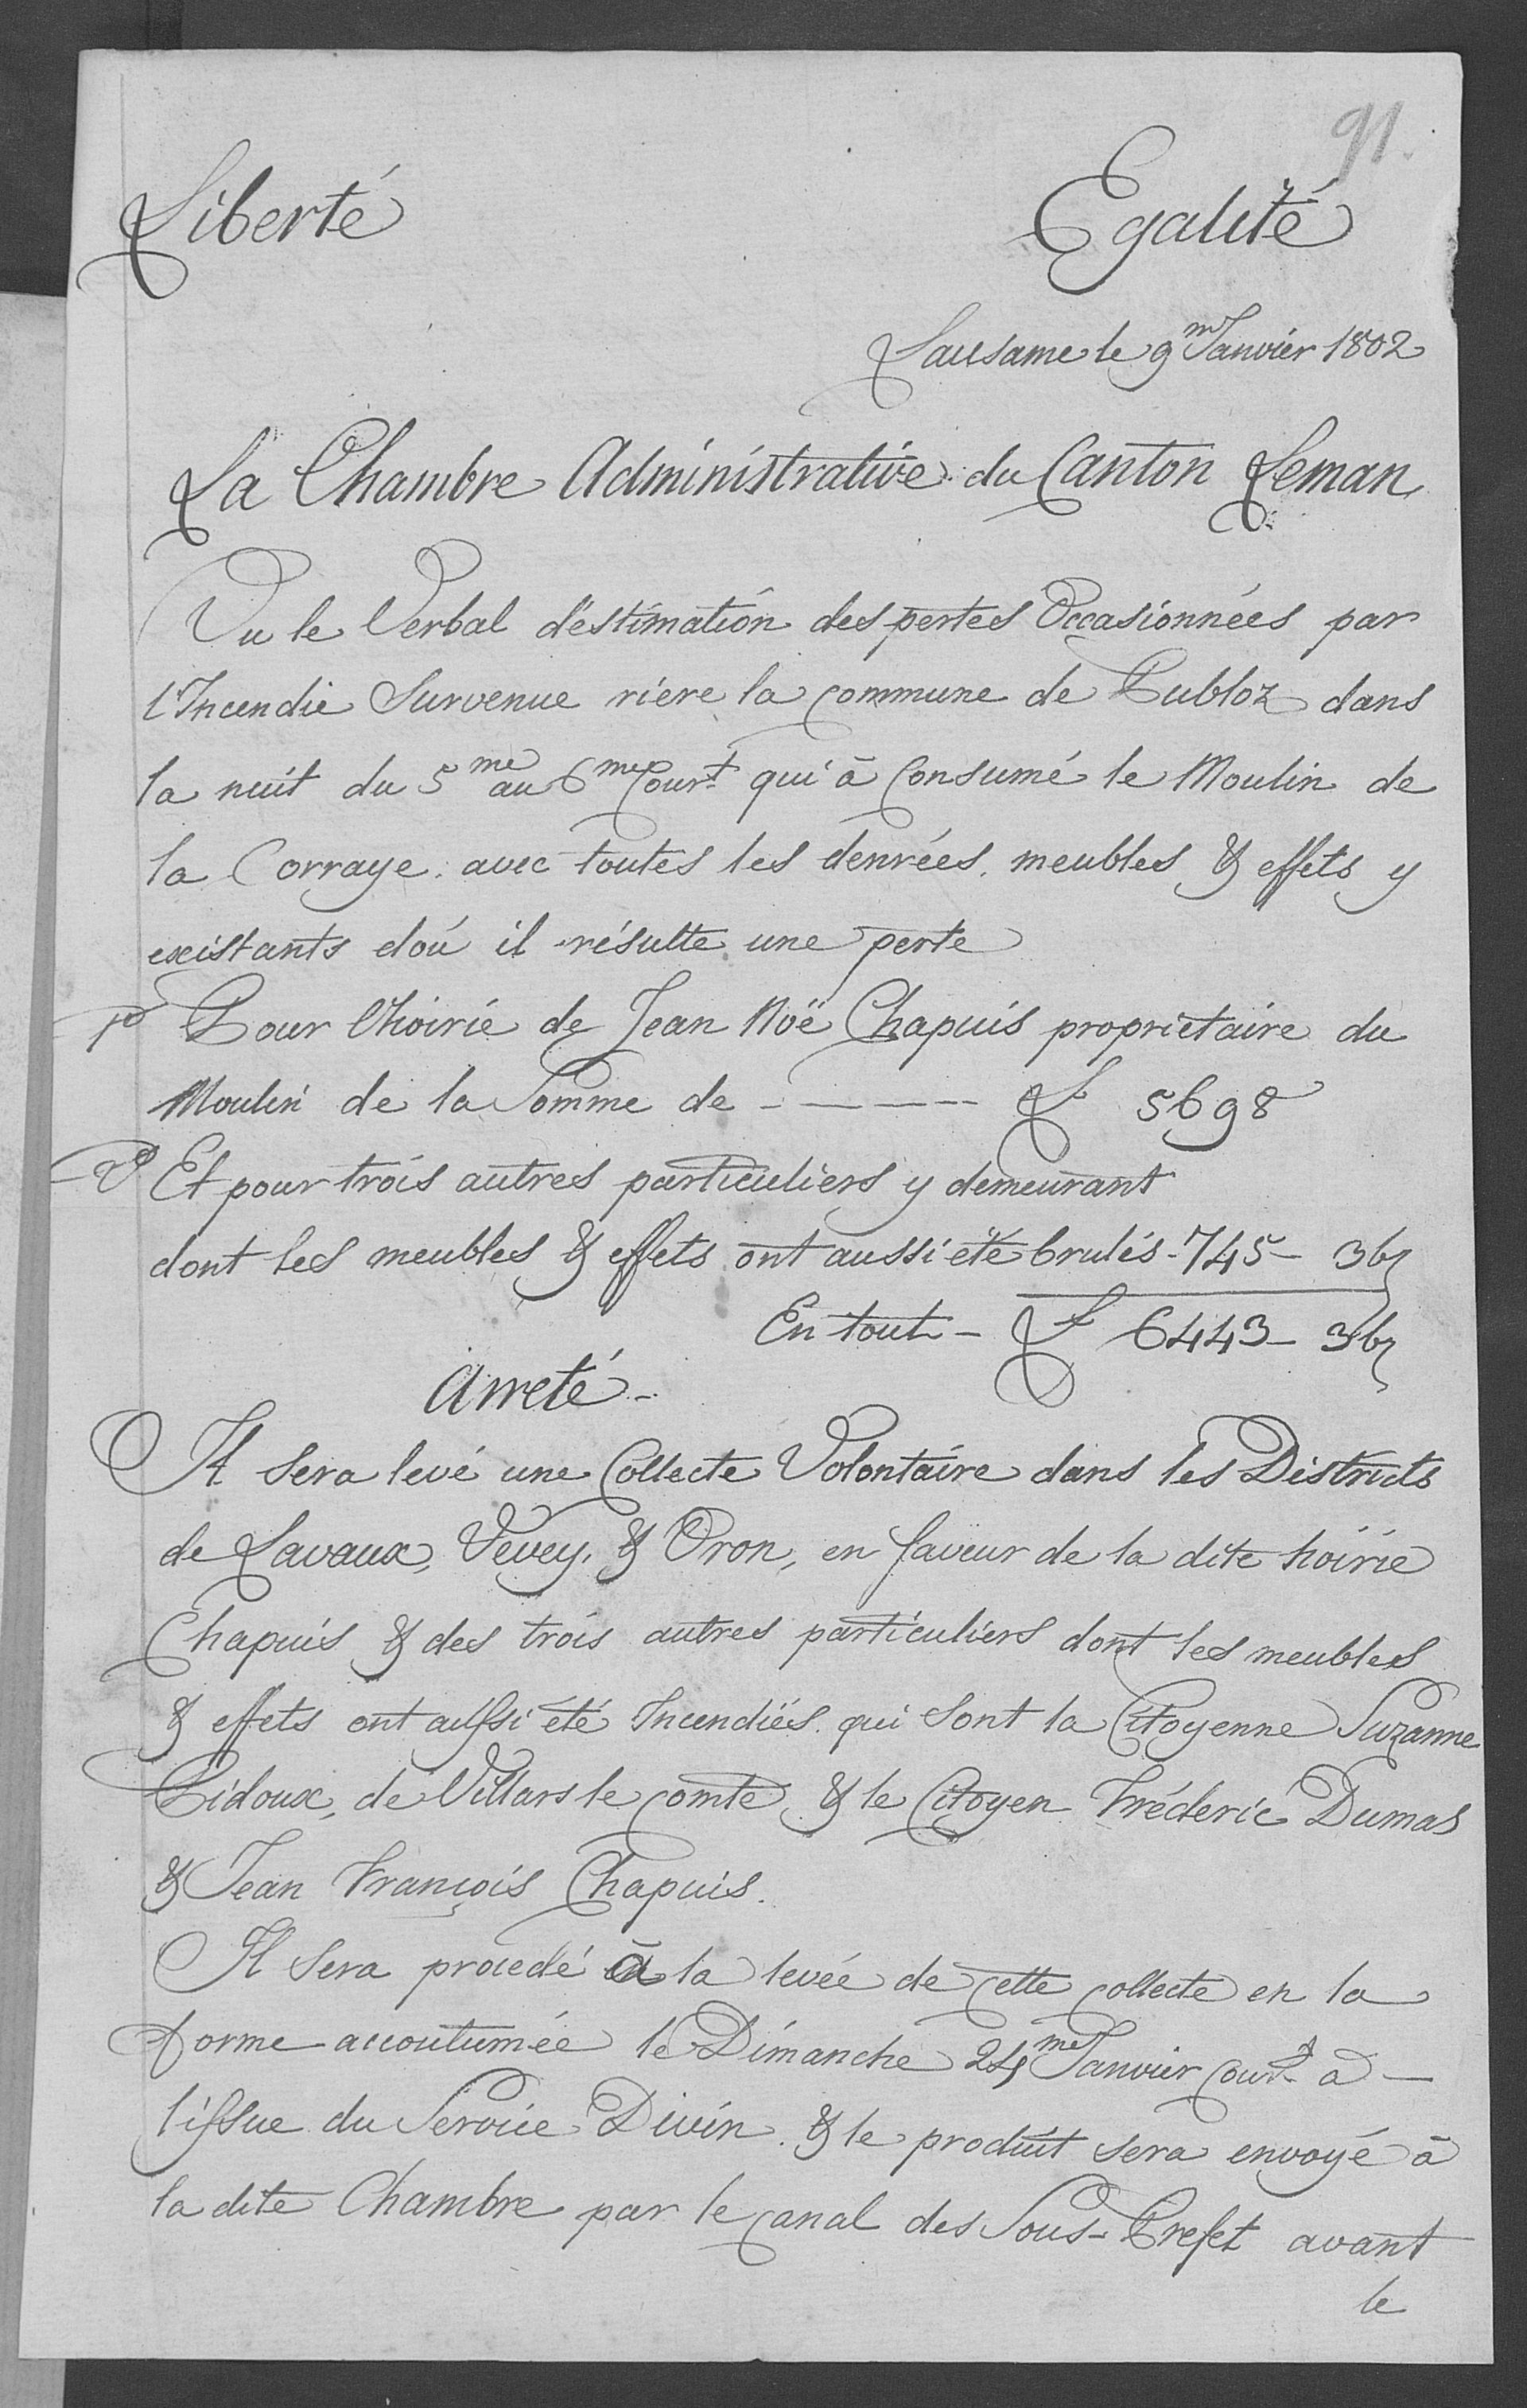 91.
Liberté Egalité
Lausanne le 9.m Janvier 1802
La Chambre Administrative du Canton Leman,
Vu le Verbal d'éstimation des pertes Occasionnées par
l'Incendie Survenue riere la commune de Publoz dans
la nuit du 5me au 6me Court qui à Consumé le Moulin de
la Corraye. avec toutes les denrées, meubles & effets y
existants d'où il résulte une perte
1o Pour l'hoirie de Jean Noë Chapuis proprietaire du
Moulin de la Somme de - - - - - £ 5698
2o Et pour trois autres particuliers y demeurant
dont les meubles & effets ont aussi été brulés - 745 - 3bz
En tout - £ 6443 - 3bz
Arreté -
Il sera levé une Collecte Volontaire dans les Districts
de Lavaux, Vevey, & Oron, en faveur de la dite hoirie
Chapuis & des trois autres particuliers dont les meubles
& effets ont aussi été Incendiés. qui sont la Citoyenne Suzanne
Pidoux, de Villars le comte & le Citoyen Fréderic Dumas
& Jean François Chapuis.
Il sera procedé à la levée de cette collecte en la
forme accoutumée le Dimanche 24me Janvier Court à -
l'issue du Service Divin. & le produit sera envoyé à
la dite Chambre par le canal des Sous-Prefet avant
le